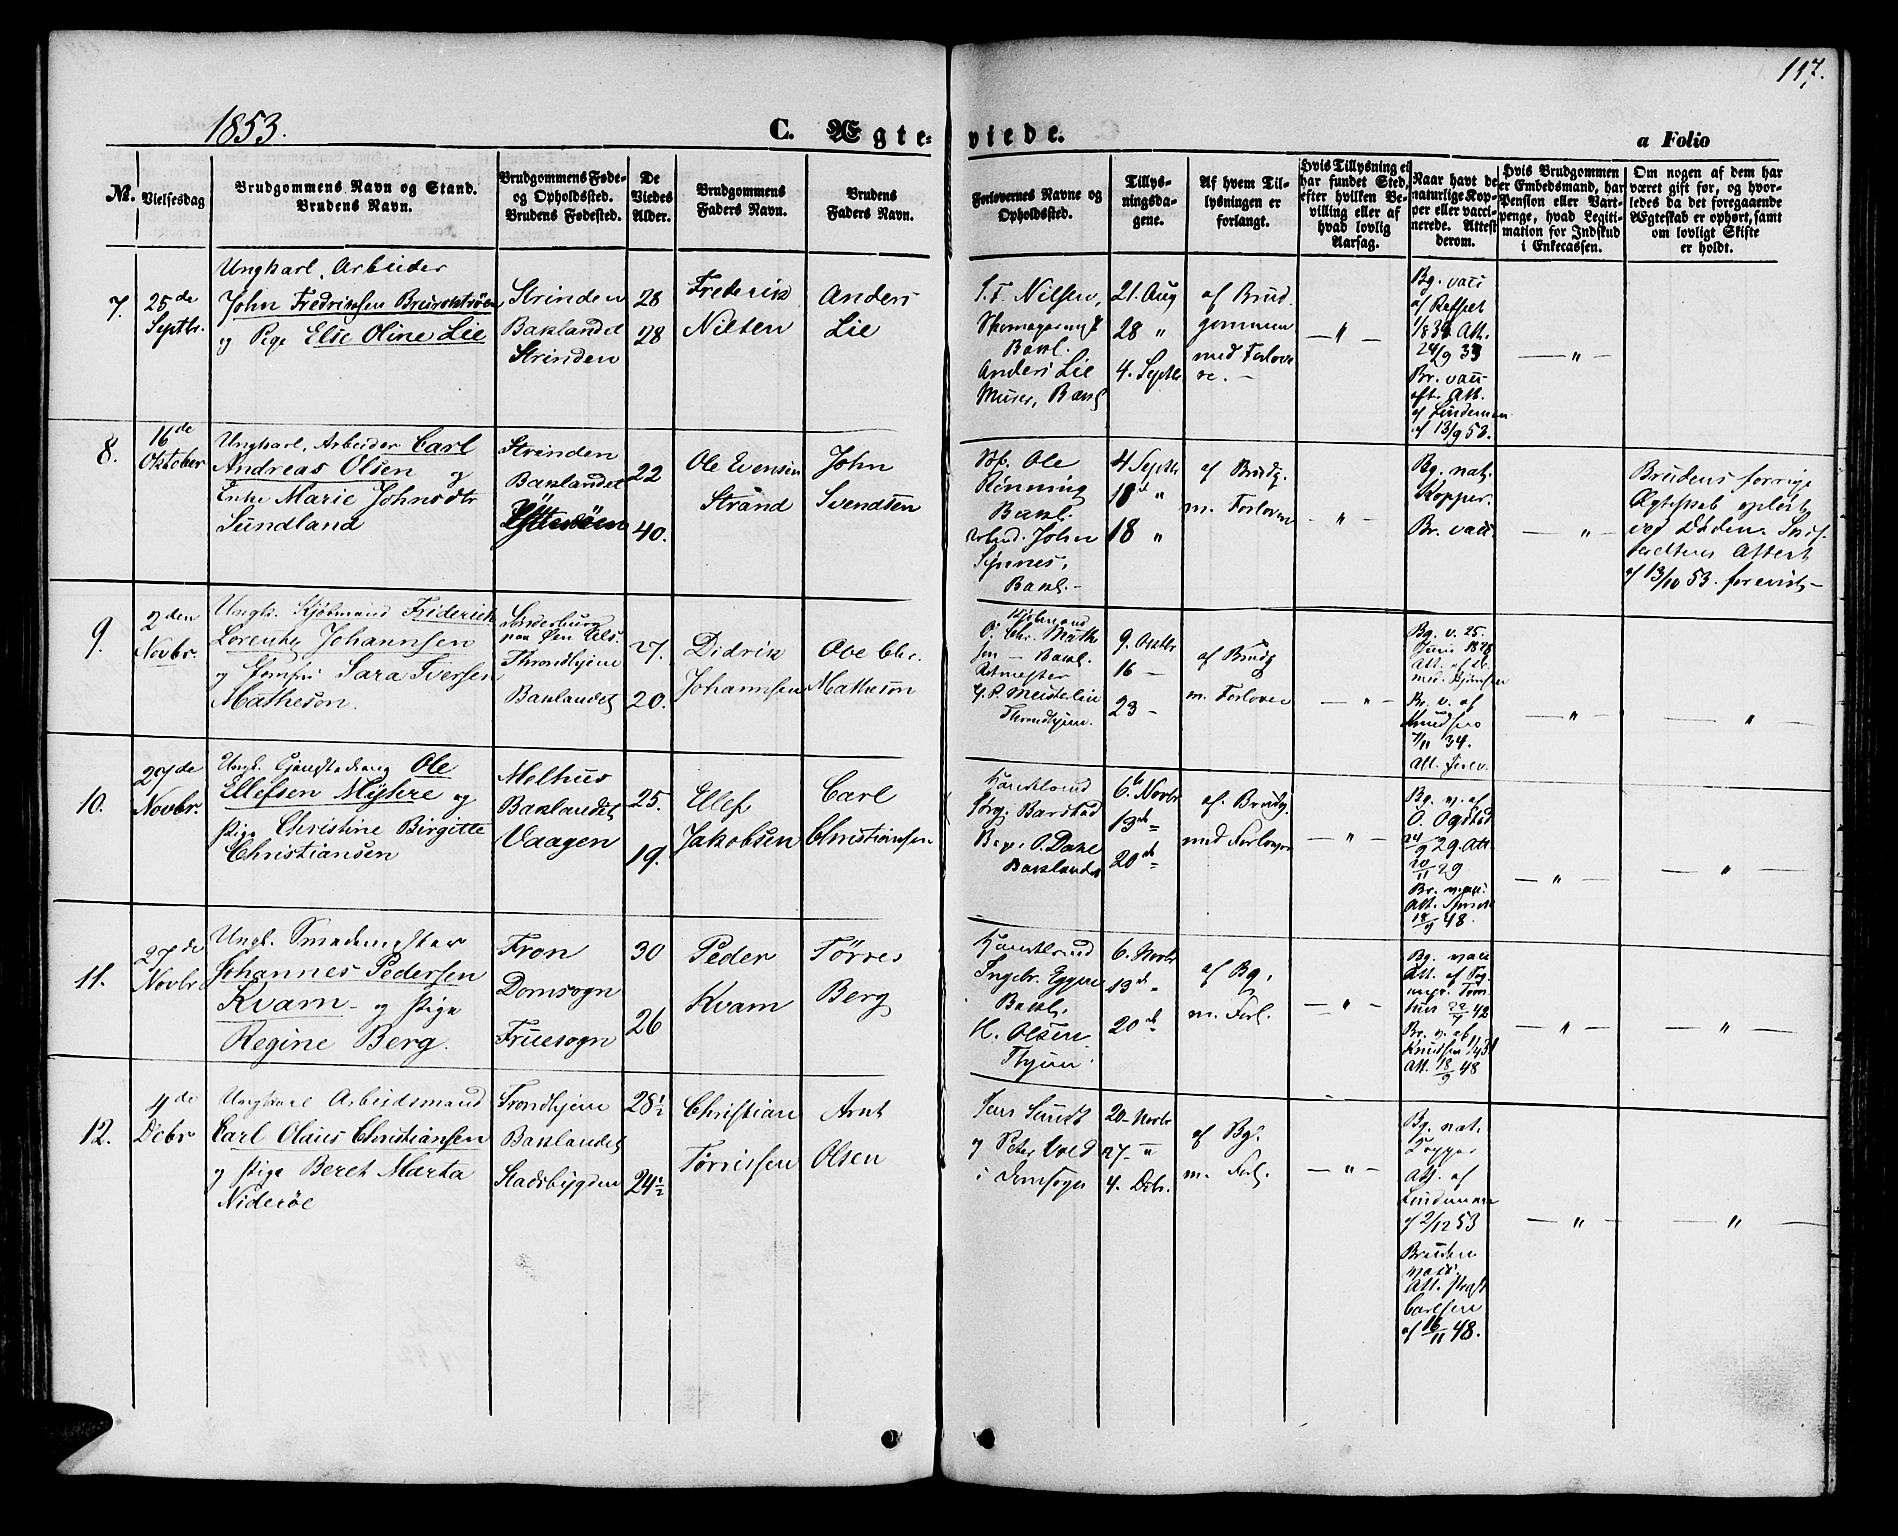 117.
1853.
C. Ægte-
viede.
a Folio
No.
Vielsesdag
Brudgommens Navn og Stand.
Brudens Navn.
Brudgommens Føde-
og Opholdssted.
Brudens Fødested.
De
Viedes
Alder.
Brudgommens
Faders Navn.
Brudens
Faders Navn.
Forlovernes Navne og
Opholdssted.
Tillys-
ningsda-
gene.
Af hvem Til-
lysningen er
forlangt.
Hvis Tillysning ei
har fundet Sted,
efter hvilken Be-
villing eller af
hvad lovlig
Aarsag.
Naar havt de
naturlige Kop-
per eller vacci-
nerede. Attest
derom.
Hvis Brudgommen
er Embedsmand, har
Pension eller Varti-
penge, hvad Legiti-
mation for Indskud
i Enkecassen.
Om nogen af dem har
været gift før, og hvor-
ledes da det foregaaende
Ægteskab er ophørt, samt
om lovligt Skifte
er holdt.
7.
25de
Septbr.
Ungkarl, Arbeider
John Fredriksen
og Pige Elie Oline Lie
Strinden
Baklandet
Strinden
28
28
Frederik
Nilsen
Anders
Lie
Nilsen,
Bakl.
Anders Lie
Murer, Bakl
21. Aug
28 "
4. Septbr
af Brud
gommen
med Forlove
re. -
— " —
Bg. vacc
24/9 33
Br. vacc
eft. Att.
af Lindeman
af 13/9 53.
— " —
8.
16de
Oktober
Ungkarl, Arbeider Carl
Andreas Olsen og
Enke Marie Johnsdtr
Sundland
Strinden
Baklandet
22
40.
Ole Evensen
Strand
John
Svendsen
Ole
Rønning
Bakl.
John
Bakl. -
4 Septbr
18de "
18 "
af Brudg.
m. Forlover
- " -
Bg. nat.
Kopper.
Br. vacc.
— " —
Brudens forrige
Ægteskab opløst
ved Døden.
Attest
af 13/10 53. forevist -
9.
2den
Novbr.
Ungk. Kjøbmand Friderich
Lorentz Johannsen
og Jomfru Sara Iversen
Matheson.
Sonderburg
paa Øen Als.
Throndhjem
Baklandet
27.
20.
Didrik
Johannsen
Ove Chr.
Matheson
Kjøbmand
O. Chr. Math
sen - Bakl.
Throndhjem.
9. Oktbr
16 -
23 -
af Brudg
m. Forlover
— " —
Bg. v. 25.
Juni 1828
Br. v. af
Knudsen
34.
— " —
— " —
10.
27de
Novbr.
Ole
Ellefsen Myhre og
Pige Christine Birgitte
Christiansen
Melhus
Baklandet
Vaagen
25.
19.
Ellef
Jakobsen
Carl
Christiansen
Barstad
Baklandet
6te Novbr
13de "
20de -
af Brudg.
med Forlover
— " —
Bg. v. af
O. Ogstad
24/9 29. Att.
20/11 29
Br. vacc.
18/9 48.
— " —
— " —
11.
27de
Novbr
Ungk. Smedemester
Johannes Pedersen
Kvam - og Pige
Regine Berg.
Fron
Domsogn
Fruesogn
30
26
Peder
Kvam
Tørres
Berg
Ingebr. Eggen
Bakl.
H. Olsen
Thjem.
6. Novbr
13de -
20de
af Bg.
m. Forl.
— " —
Bg. vacc
Att. af
42
Br. v. af
Knudsen
Att. 18/9 48
— " —
— " —
12.
4de
Debr
Ungkarl Arbeidsmand
Carl Olaus Christiansen
og Pige Beret Marta
Niderøe
Trondhjem
Baklandet
Stadsbygden
28½
24½
Christian
Torrissen
Arnt
Olsen
Jens Sundt
og Peter Wold
i Domsogn
20- Novbr
27- "
4. Debr.
af Bg.
m. Forl.
— " —
Bg. nat.
Kopper
Att. af
Lindeman
af 2/12 53
Bruden
vacc.
Att. Præst
Carlsen
af 16/11 48.
— " —
— " —